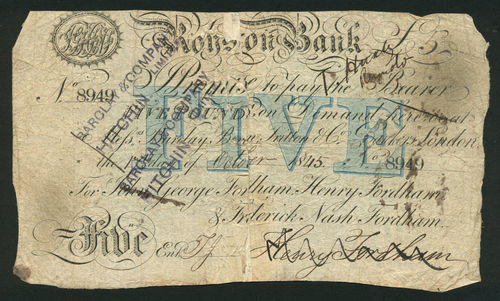 Royston Bank £5
No 8949 I Promise to pay the Bearer
FIVE POUNDS on Demand here or at
Mess.rs Barclay, Bevan, Tritton & Co. Bankers London
the day of October 1845. No 8949
For John George Fordham, Henry Fordham
& Frederick Nash Fordham.
£Five
Ent.d Henry Fordham
FIVE
BARCLAY & COMPANY
LIMITED
HITCHIN
BARCLAY & COMPANY
LIMITED
HITCHIN